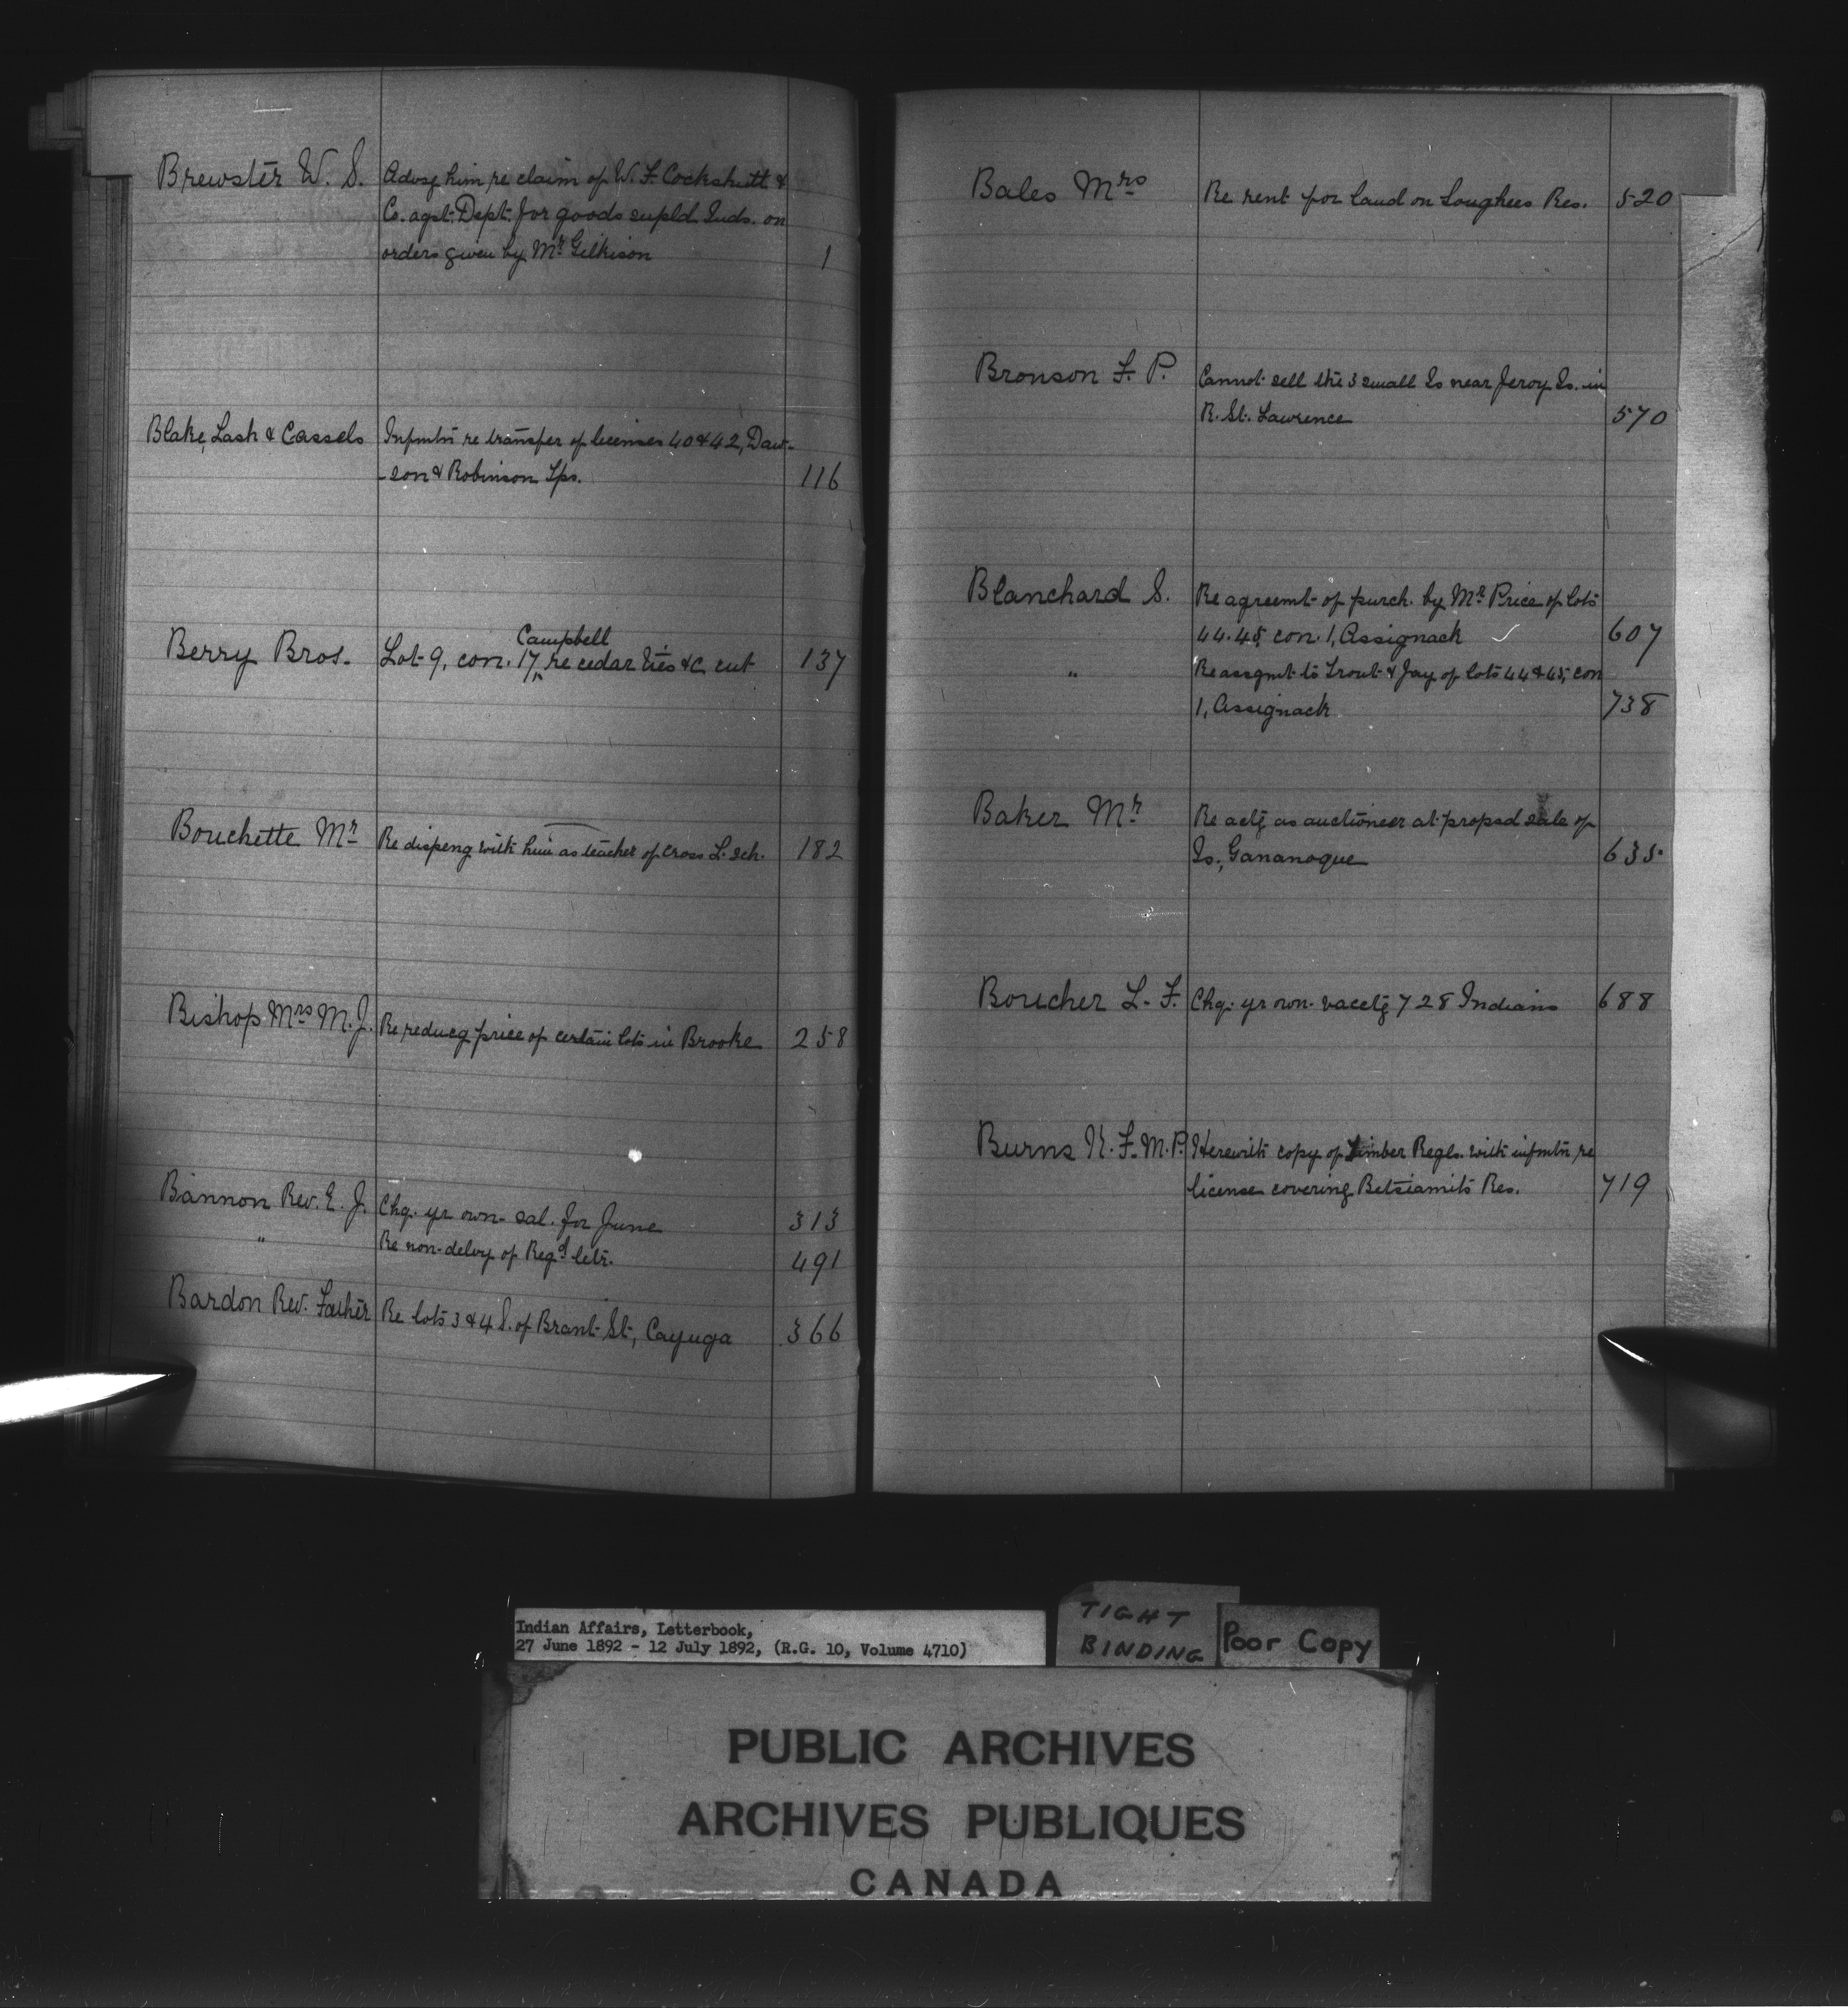 Brewster W. S. Advsg him re claim of W. F. Cockshutt &
Co. agst. Dept. for goods supld Inds. on
orders given by Mr Gilkison 1
Blake, Lash & Cassels Infmtn re transfer of licenses 40 & 42, Daw-
-son & Robinson Tps. 116
Campbell
Berry Bros. Lot 9, con. 17, re cedar ties &c cut 137
Bouchette Mr Re dispeng with him as teacher of Cross L. sch. 182
Bishop Mrs M. J. Re reducg price of certain lots in Brooke 258
Bannon Rev. E. J. Chq. yr own. sal. for June 313
" Re non-delvy of Regd letr. 491
Bardon Rev. Father Re lots 3 & 4 S. of Brant St., Cayuga 366
Bales Mrs Re rent for land on Songhees Res. 520
Bronson F. P. Cannot sell the 3 small Is near Jeroy Is. in
R. St. Lawrence 570
Blanchard S. Re agreemt of purch. by Mr Price of lots
44.45, con. 1, Assignack ✓ 607
" Re assgmt to Trout & Jay of lots 44 & 45, con
1, Assignack 738
Baker Mr Re actg as auctioneer at propsd sale of
Is., Gananoque 635
Boucher L. F. Chq. yr own. vacctg 728 Indians 688
Burns K. F. M.P. Herewith copy of Timber Regls. with infmtn re
license covering Betsiamits Res. 719
Indian Affairs, Letterbook,
27 June 1892 - 12 July 1892, (R.G. 10, Volume 4710)
TIGHT
BINDING
Poor Copy
PUBLIC ARCHIVES
ARCHIVES PUBLIQUES
CANADA